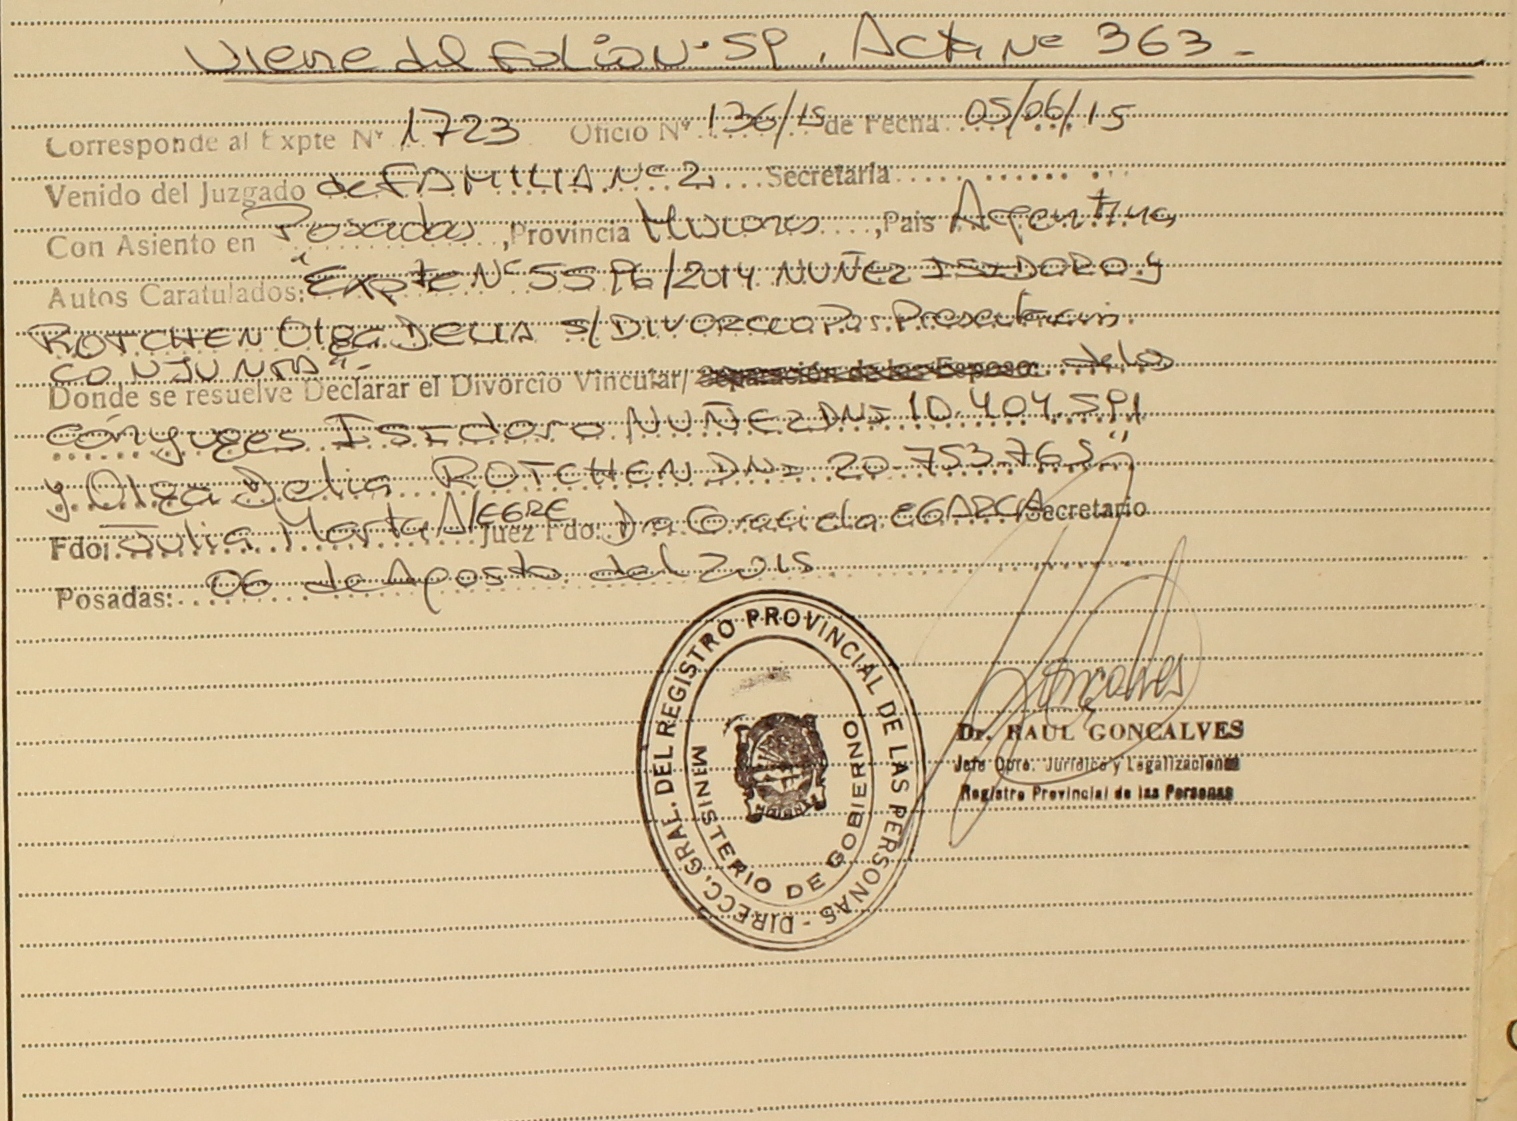 Viene del Folio Nº 59. Acta Nº 363-
Corresponde al Expte Nº 1723 Oficio Nº 136/15 de Fecha 05/06/15
Venido del Juzgado de FAMILIA Nº 2. Secretaria
Con Asiento en Posadas, Provincia Misiones, Pais Argentina
Autos Caratulados: "Expte Nº 5596/2014 NUÑEZ ISIDORO y
ROTCHEN Olga DELIA s/ DIVORCIO Por Presentacion
CONJUNTA"-
Donde se resuelve Declarar el Divorcio Vincular/ Separación de los Esposos: de los
cónyuges Isidoro NUÑEZ DNI 10.404.591
y Olga Delia ROTCHEN DNI 20.753.763"
Fdo: Julia Marta ALEGRE Juez Fdo: Dra Graciela EGARCIA Secretario
Posadas: 06 de Agosto del 2015
DIRECC. GRAL. DEL REGISTRO PROVINCIAL DE LAS PERSONAS -
MINISTERIO DE GOBIERNO
Goncalves
Dr. RAUL GONCALVES
Jefe Dpto. Jurídico y Legalizaciones
Registro Provincial de las Personas